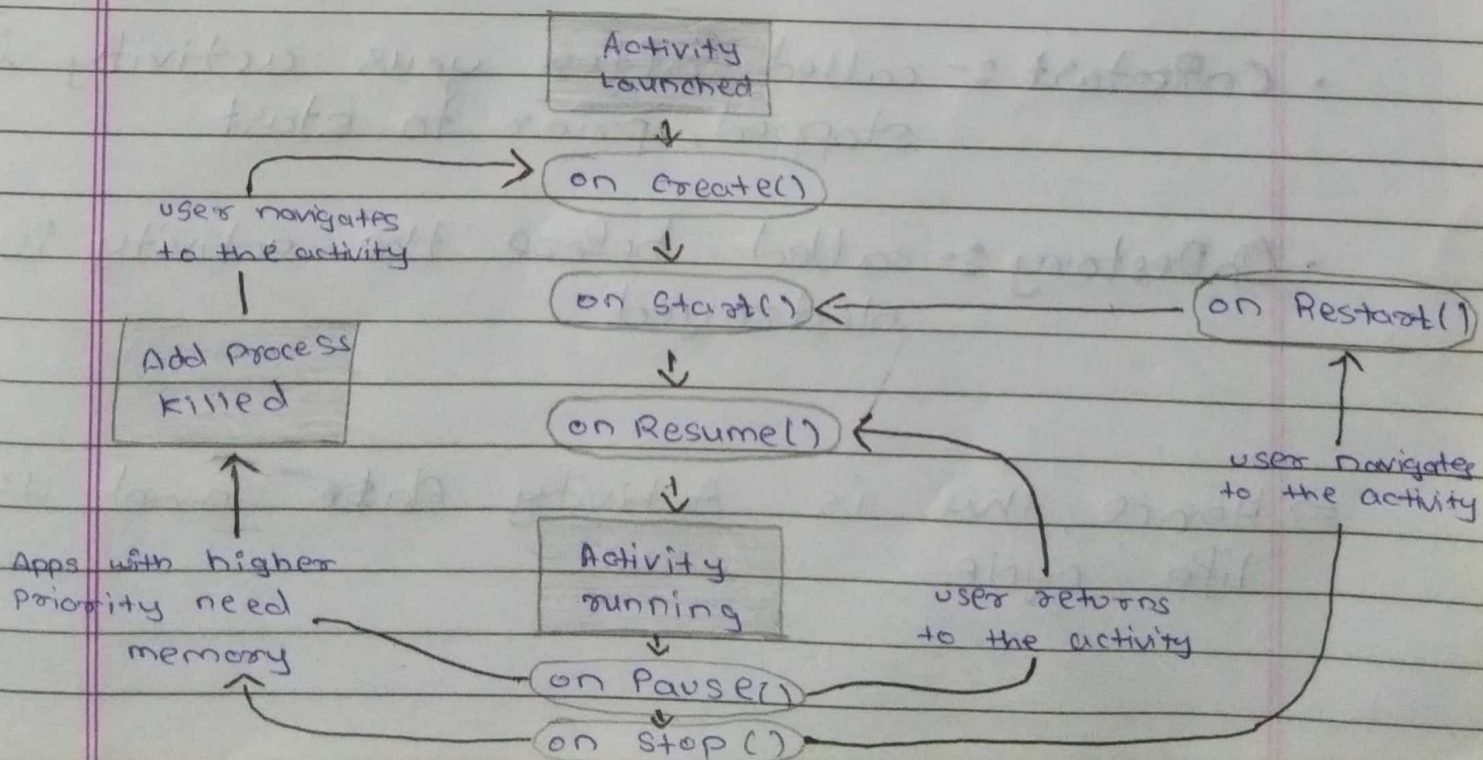 Activity
Launched
on Create()
user navigates
to the activity
on Start()
on Restart()
Add process
killed
on Resume()
user navigates
to the activity
Apps with higher
Priority need
memory
Activity
running
user returns
to the activity
on Pause()
on Stop()